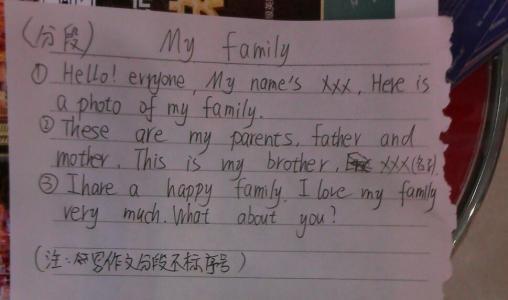 (分段) My family
① Hello! eryone, My name's xxx. Here is
a photo of my family.
② These are my parents, father and
mother. This is my brother, xxx(名字).
③ I hare a happy family. I love my family
very much. What about you?
(注:写作文分段不标序号)